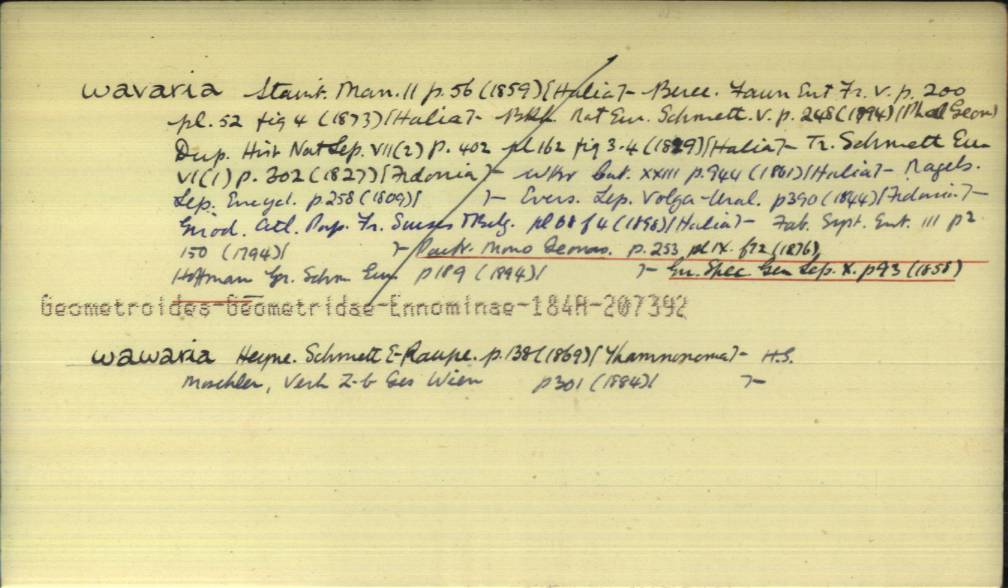 wavaria Staint. Man. II p. 56 (1859) [Halia] - Berce. Faun Ent Fr. V. p. 200
pl. 52 fig 4 (1873) [Halia] - Nat Eur. Schmett. V. p. 248 (1794) [Phal Geom]
Dup. Hist Nat Lep. VII(2) p. 402 pl 162 fig 3-4 (1829) [Halia] - Tr. Schmett Eur
VI(1) p. 302 (1827) [Fidonia] - Wkr Cat. XXIII p. 944 (1861) [Halia] -
Lep. Encycl. p 258 (1809) [ ] - Evers. Lep. Volga-Ural. p 390 (1844) [Fidonia] -
Girod. Atl. Pap. Fr. Suisse Belg. pl 68 f 4 (1898) [Halia] - Fab. Syst. Ent. III p 2
150 (1794) [ ] - Pack. Mono Geom. p. 253, pl IX. f 72 (1876)
Hoffman Gr. Schm Eur. p 189 (1894) [ ] - Gn. Spec Gen Lep. X. p 93 (1858)
Geometroidea-Geometridae-Ennominae-184A-207392
wawaria Heyne. Schmett E-Raupe. p. 138 (1869) [Thamnonoma] - H.S.
Moschler, Verh Z-b Ges Wien p 301 (1884) [ ] -